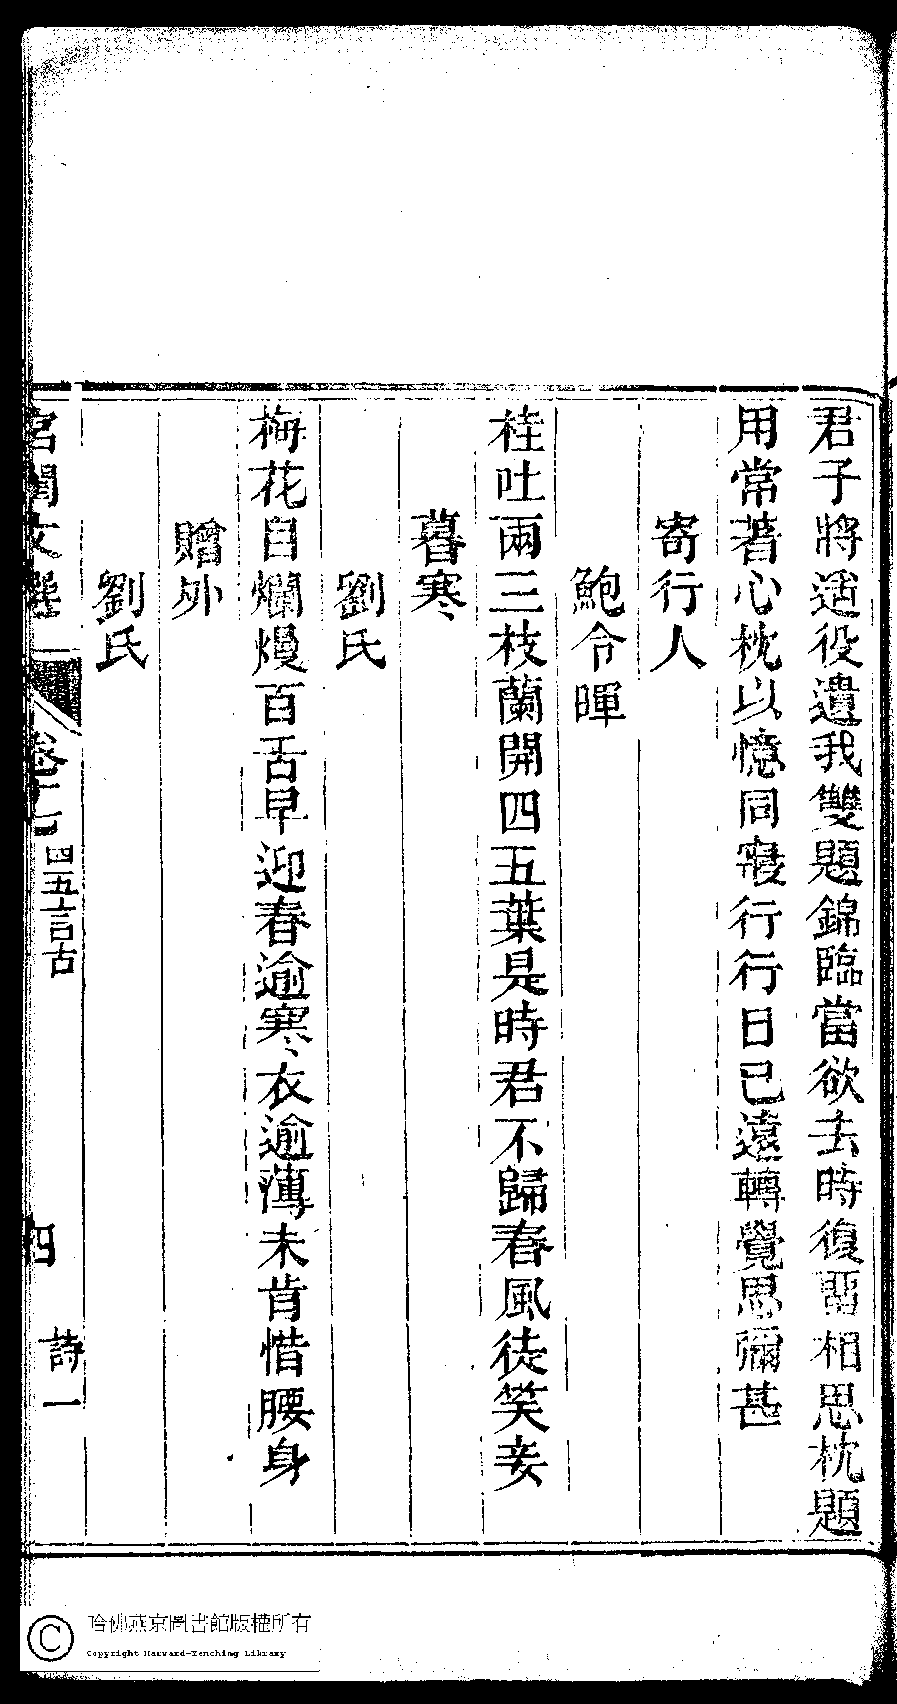 君子將遥役遺我雙題錦臨當欲去時復畱相思枕題
用常著心枕以憶同寝行行日已遠轉覺思彌甚
寄行人
鮑令暉
桂吐兩三枝蘭開四五葉是時君不歸春風徒笑妾
暮寒
劉氏
梅花自爛熳百舌早迎春逾寒衣逾薄未肯惜腰身
贈外
劉氏
宮閨文選
卷十七
四五言古
四
詩一
哈佛燕京圖書館版權所有
Copyright Harvard-Yenching Library